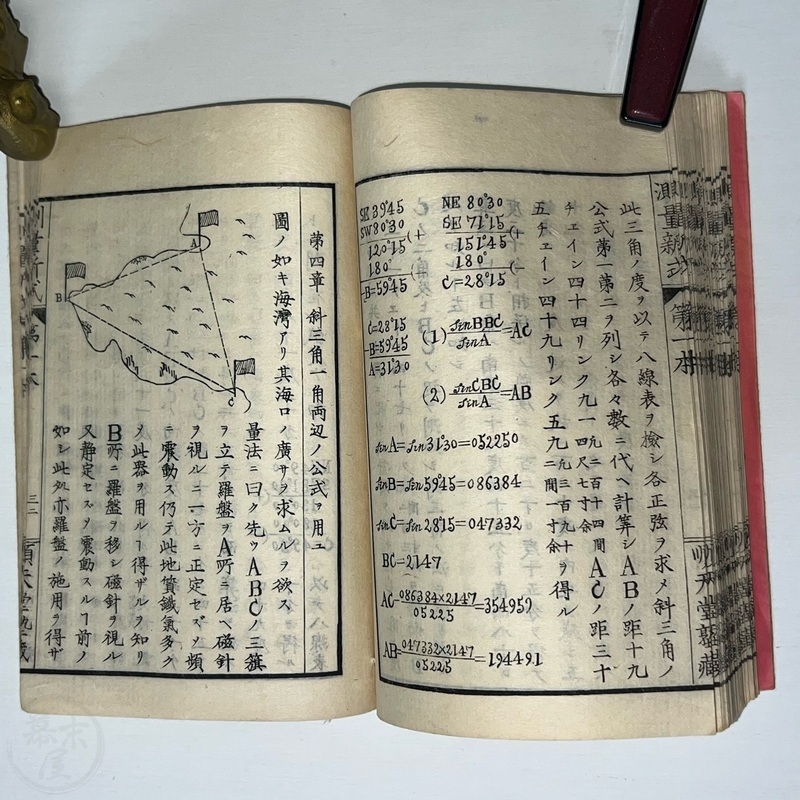 測量新式
第一本
順天堂塾蔵
此三角ノ度ヲ以テ八線表ヲ検シ各正弦ヲ求メ斜三角ノ
公式第一第二ヲ列シ各々数ニ代ヘ計算シABノ距十九
チェイン四十四リンク九一四尺七寸余 九二百十四間 ACノ距三十
五チェイン四十九リンク五九二間一寸余 九三百九十ヲ得ル
NE 80°30
SE 71°15 (+
151°45
180° (−
C=28°15
SE 39°45
SW 80°30 (+
120°15
180° (−
B=59°45
C=28°15
B=59°45
A=31°30
(1) sinBBC/sinA=AC
(2) sinCBC/sinA=AB
sinA=sin31°30=052250
sinB=sin59°45=086384
sinC=sin28°15=047332
BC=2147
AC=086384×2147/05225=354959
AB=047332×2147/05225=194491
第四章 斜三角一角両辺ノ公式ヲ用ユ
圖ノ如キ海灣アリ其海口ノ廣サヲ求ムルヲ欲ス
量法ニ曰ク先ツABCノ三旗
ヲ立テ羅盤ヲA所ニ居ヘ磁針
ヲ視ルニ一方ニ正定セズシ頻
ニ震動ス仍テ此地質鐵氣多ク
メ此器ヲ用ルヿ得ザルヲ知リ
B所ニ羅盤ヲ移シ磁針ヲ視ル
又静定セズシ震動スルヿ前ノ
如シ此処亦羅盤ノ施用ヲ得ザ
A
B
C
三一